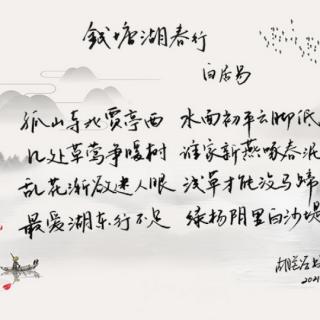 钱塘湖春行
白居易
孤山寺北贾亭西 水面初平云脚低
几处草莺争暖树 谁家新燕啄春泥
乱花渐欲迷人眼 浅草才能没马蹄
最爱湖东行不足 绿杨阴里白沙堤